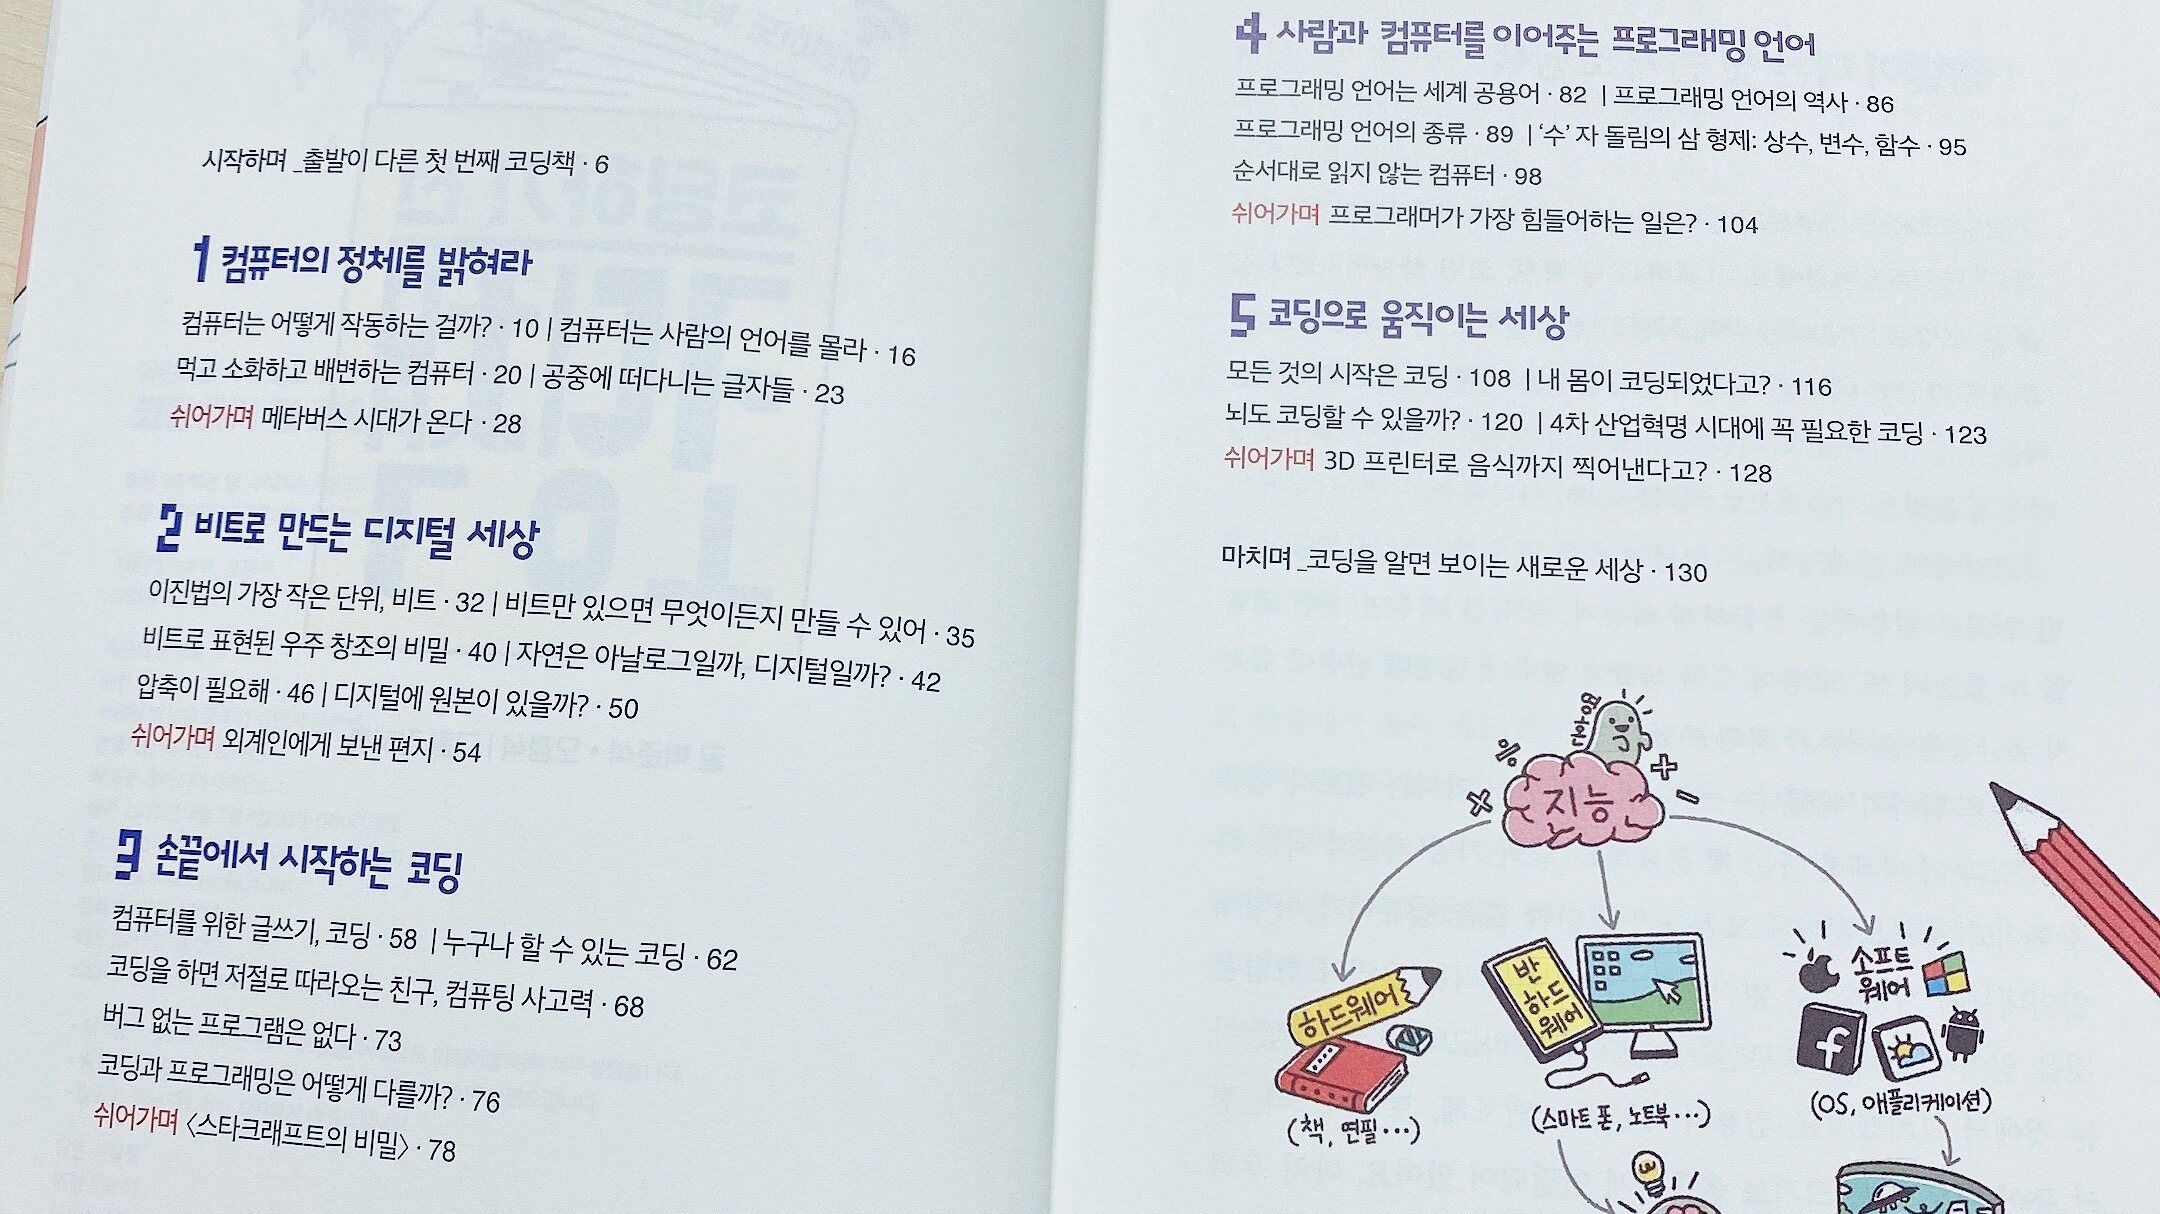 시작하며 _출발이 다른 첫 번째 코딩책 · 6
1 컴퓨터의 정체를 밝혀라
컴퓨터는 어떻게 작동하는 걸까? · 10 | 컴퓨터는 사람의 언어를 몰라 · 16
먹고 소화하고 배변하는 컴퓨터 · 20 | 공중에 떠다니는 글자들 · 23
쉬어가며 메타버스 시대가 온다 · 28
2 비트로 만드는 디지털 세상
이진법의 가장 작은 단위, 비트 · 32 | 비트만 있으면 무엇이든지 만들 수 있어 · 35
비트로 표현된 우주 창조의 비밀 · 40 | 자연은 아날로그일까, 디지털일까? · 42
압축이 필요해 · 46 | 디지털에 원본이 있을까? · 50
쉬어가며 외계인에게 보낸 편지 · 54
3 손끝에서 시작하는 코딩
컴퓨터를 위한 글쓰기, 코딩 · 58 | 누구나 할 수 있는 코딩 · 62
코딩을 하면 저절로 따라오는 친구, 컴퓨팅 사고력 · 68
버그 없는 프로그램은 없다 · 73
코딩과 프로그래밍은 어떻게 다를까? · 76
쉬어가며 〈스타크래프트의 비밀〉 · 78
4 사람과 컴퓨터를 이어주는 프로그래밍 언어
프로그래밍 언어는 세계 공용어 · 82 | 프로그래밍 언어의 역사 · 86
프로그래밍 언어의 종류 · 89 | ‘수’ 자 돌림의 삼 형제: 상수, 변수, 함수 · 95
순서대로 읽지 않는 컴퓨터 · 98
쉬어가며 프로그래머가 가장 힘들어하는 일은? · 104
5 코딩으로 움직이는 세상
모든 것의 시작은 코딩 · 108 | 내 몸이 코딩되었다고? · 116
뇌도 코딩할 수 있을까? · 120 | 4차 산업혁명 시대에 꼭 필요한 코딩 · 123
쉬어가며 3D 프린터로 음식까지 찍어낸다고? · 128
마치며 _코딩을 알면 보이는 새로운 세상 · 130
지능
하드웨어
(책, 연필···)
반
하드
웨어
(스마트 폰, 노트북···)
소프트
웨어
(OS, 애플리케이션)